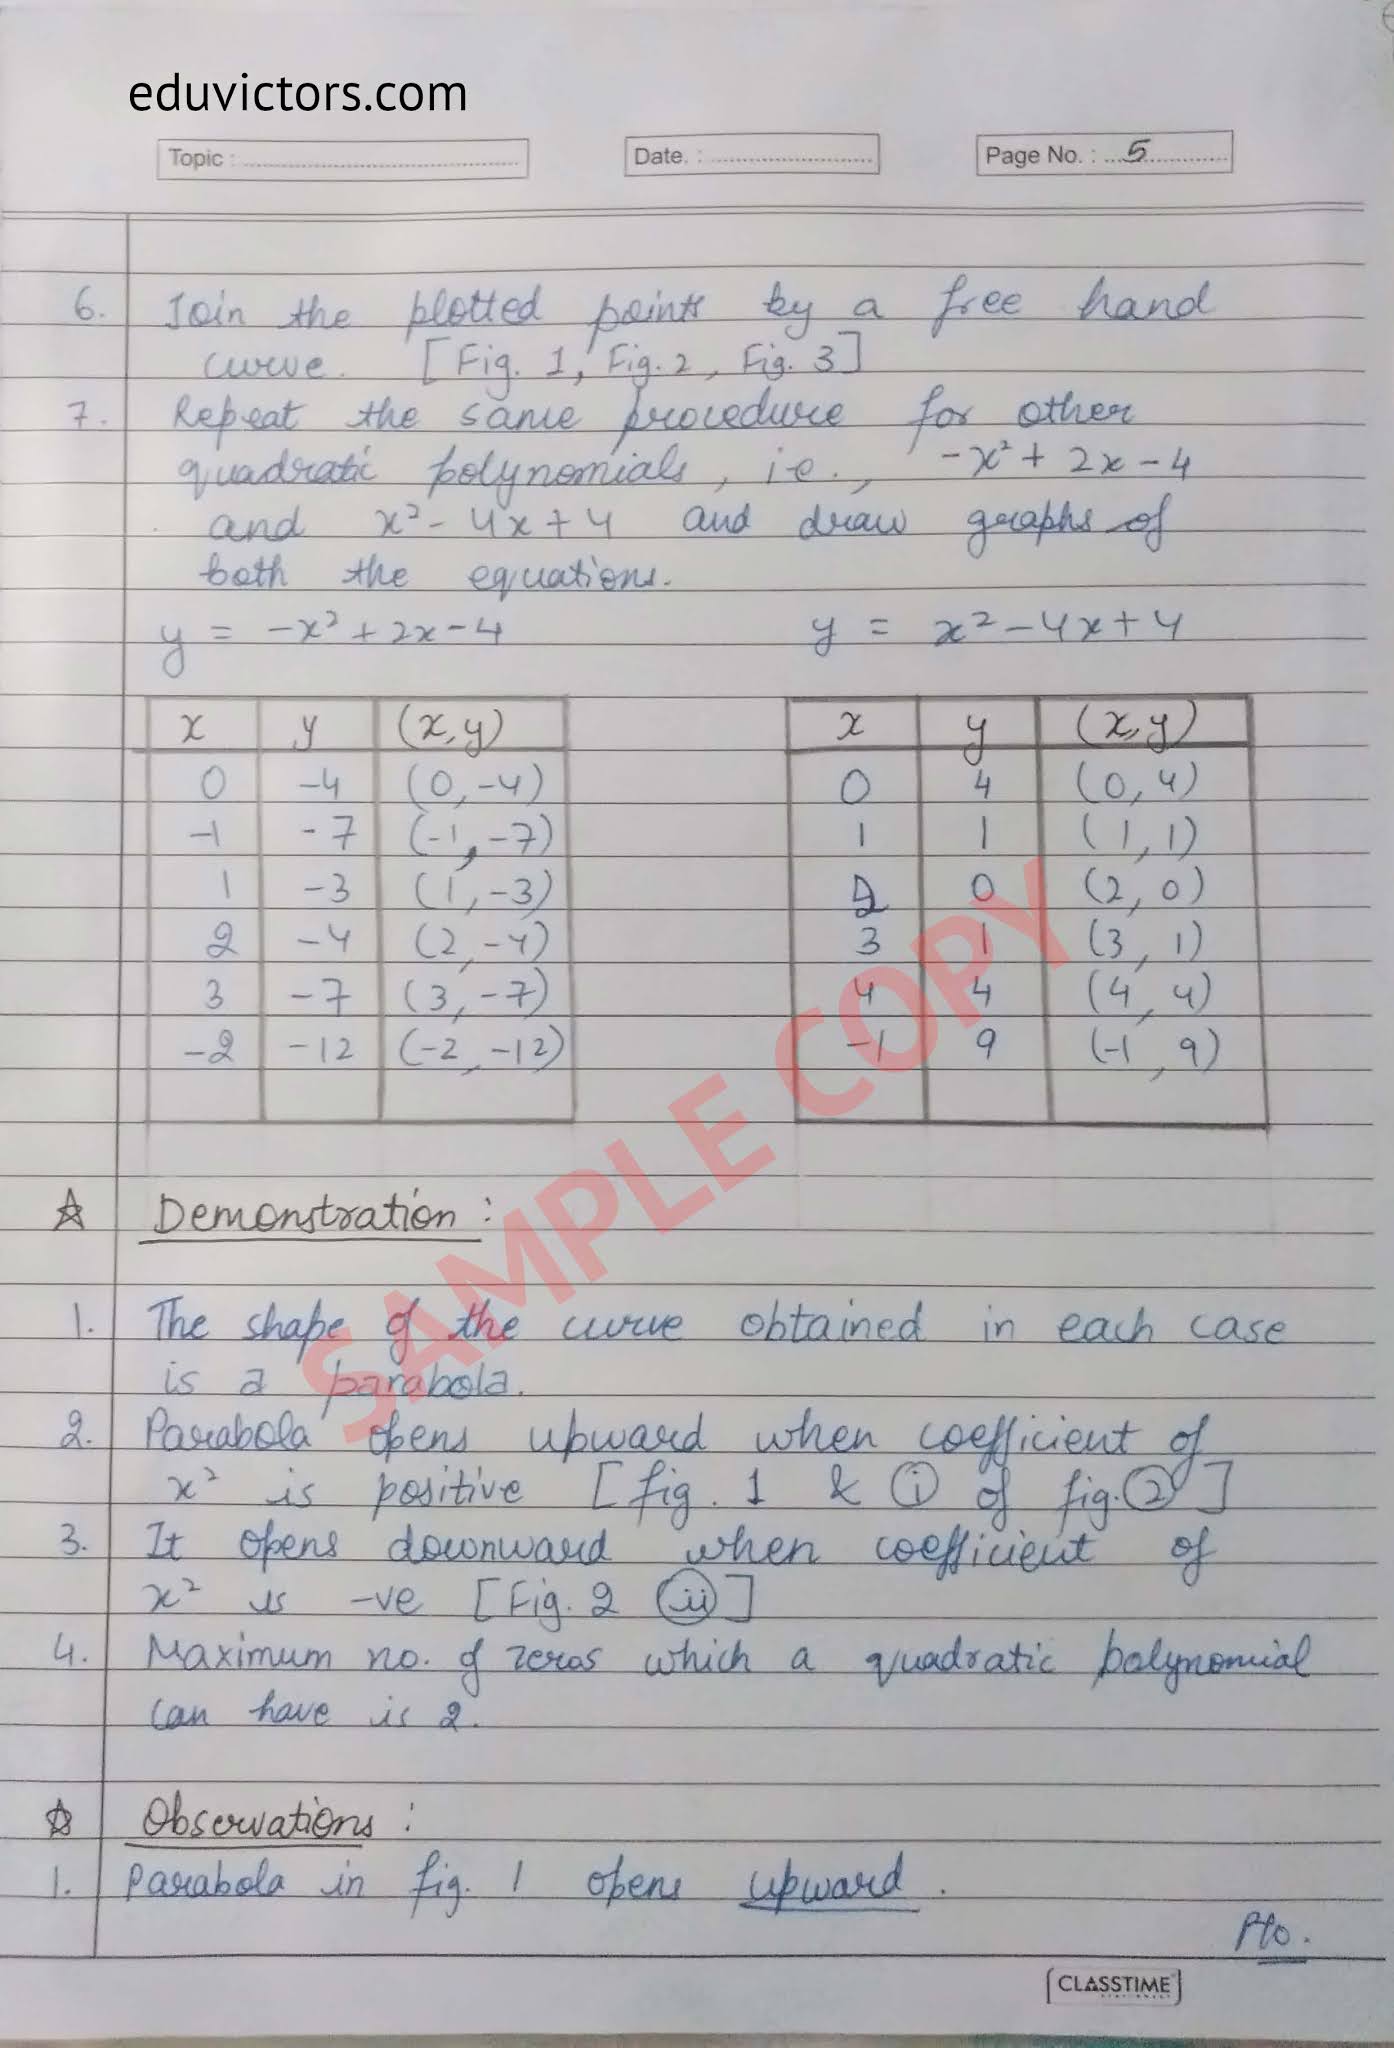 eduvictors.com
Topic : Date. : Page No. : 5
6. Join the plotted points by a free hand
curve. [Fig. 1, Fig. 2, Fig. 3]
7. Repeat the same procedure for other
quadratic polynomials, i.e., -x² + 2x - 4
and x² - 4x + 4 and draw graphs of
both the equations.
y = -x² + 2x - 4 y = x² - 4x + 4
x y (x, y) x y (x, y)
0 -4 (0, -4) 0 4 (0, 4)
-1 -7 (-1, -7) 1 1 (1, 1)
1 -3 (1, -3) 2 0 (2, 0)
2 -4 (2, -4) 3 1 (3, 1)
3 -7 (3, -7) 4 4 (4, 4)
-2 -12 (-2, -12) -1 9 (-1, 9)
SAMPLE COPY
☆ Demonstration :
1. The shape of the curve obtained in each case
is a parabola.
2. Parabola opens upward when coefficient of
x² is positive [fig. 1 & (i) of fig. (2)]
3. It opens downward when coefficient of
x² is -ve [Fig. 2 (ii)]
4. Maximum no. of zeros which a quadratic polynomial
can have is 2.
☆ Observations :
1. Parabola in fig. 1 opens upward.
Pto.
CLASSTIME